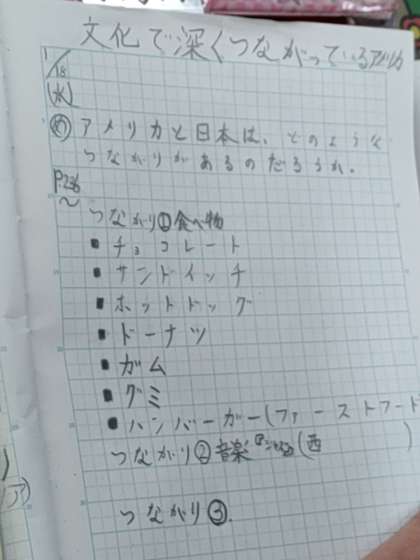 文化で深くつながっているアメリカ
1/18
(水)
め アメリカと日本は、どのような
つながりがあるのだろうか。
P.236
～
つながり①食べ物
▪チョコレート
▪サンドイッチ
▪ホットドッグ
▪ドーナツ
▪ガム
▪グミ
▪ハンバーガー(ファーストフード
つながり②音楽 (西 )
つながり③.
ア